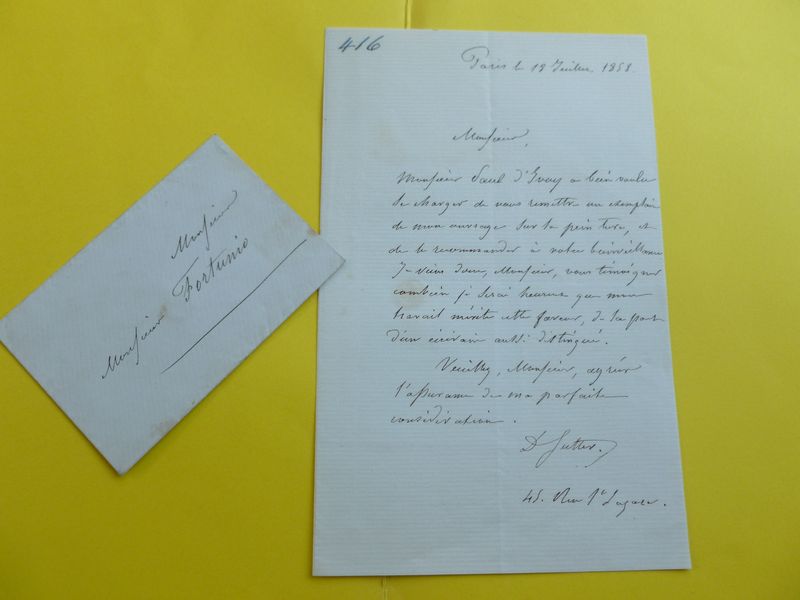 416
Paris le 19 Juillet 1858.
Monsieur,
Monsieur d'Ivoy a bien voulu
se charger de vous remettre un exemplaire
de mon ouvrage sur la peinture, et
de le recommander à votre bienveillance
Je viens donc, Monsieur, vous témoigner
combien je serai heureux que mon
travail mérite cette faveur, de la part
d'un écrivain aussi distingué.
Veuillez, Monsieur, agréer
l'assurance de ma parfaite
considération.
D Sutter.
45. Rue St Lazare.
Monsieur
Monsieur Fortunio